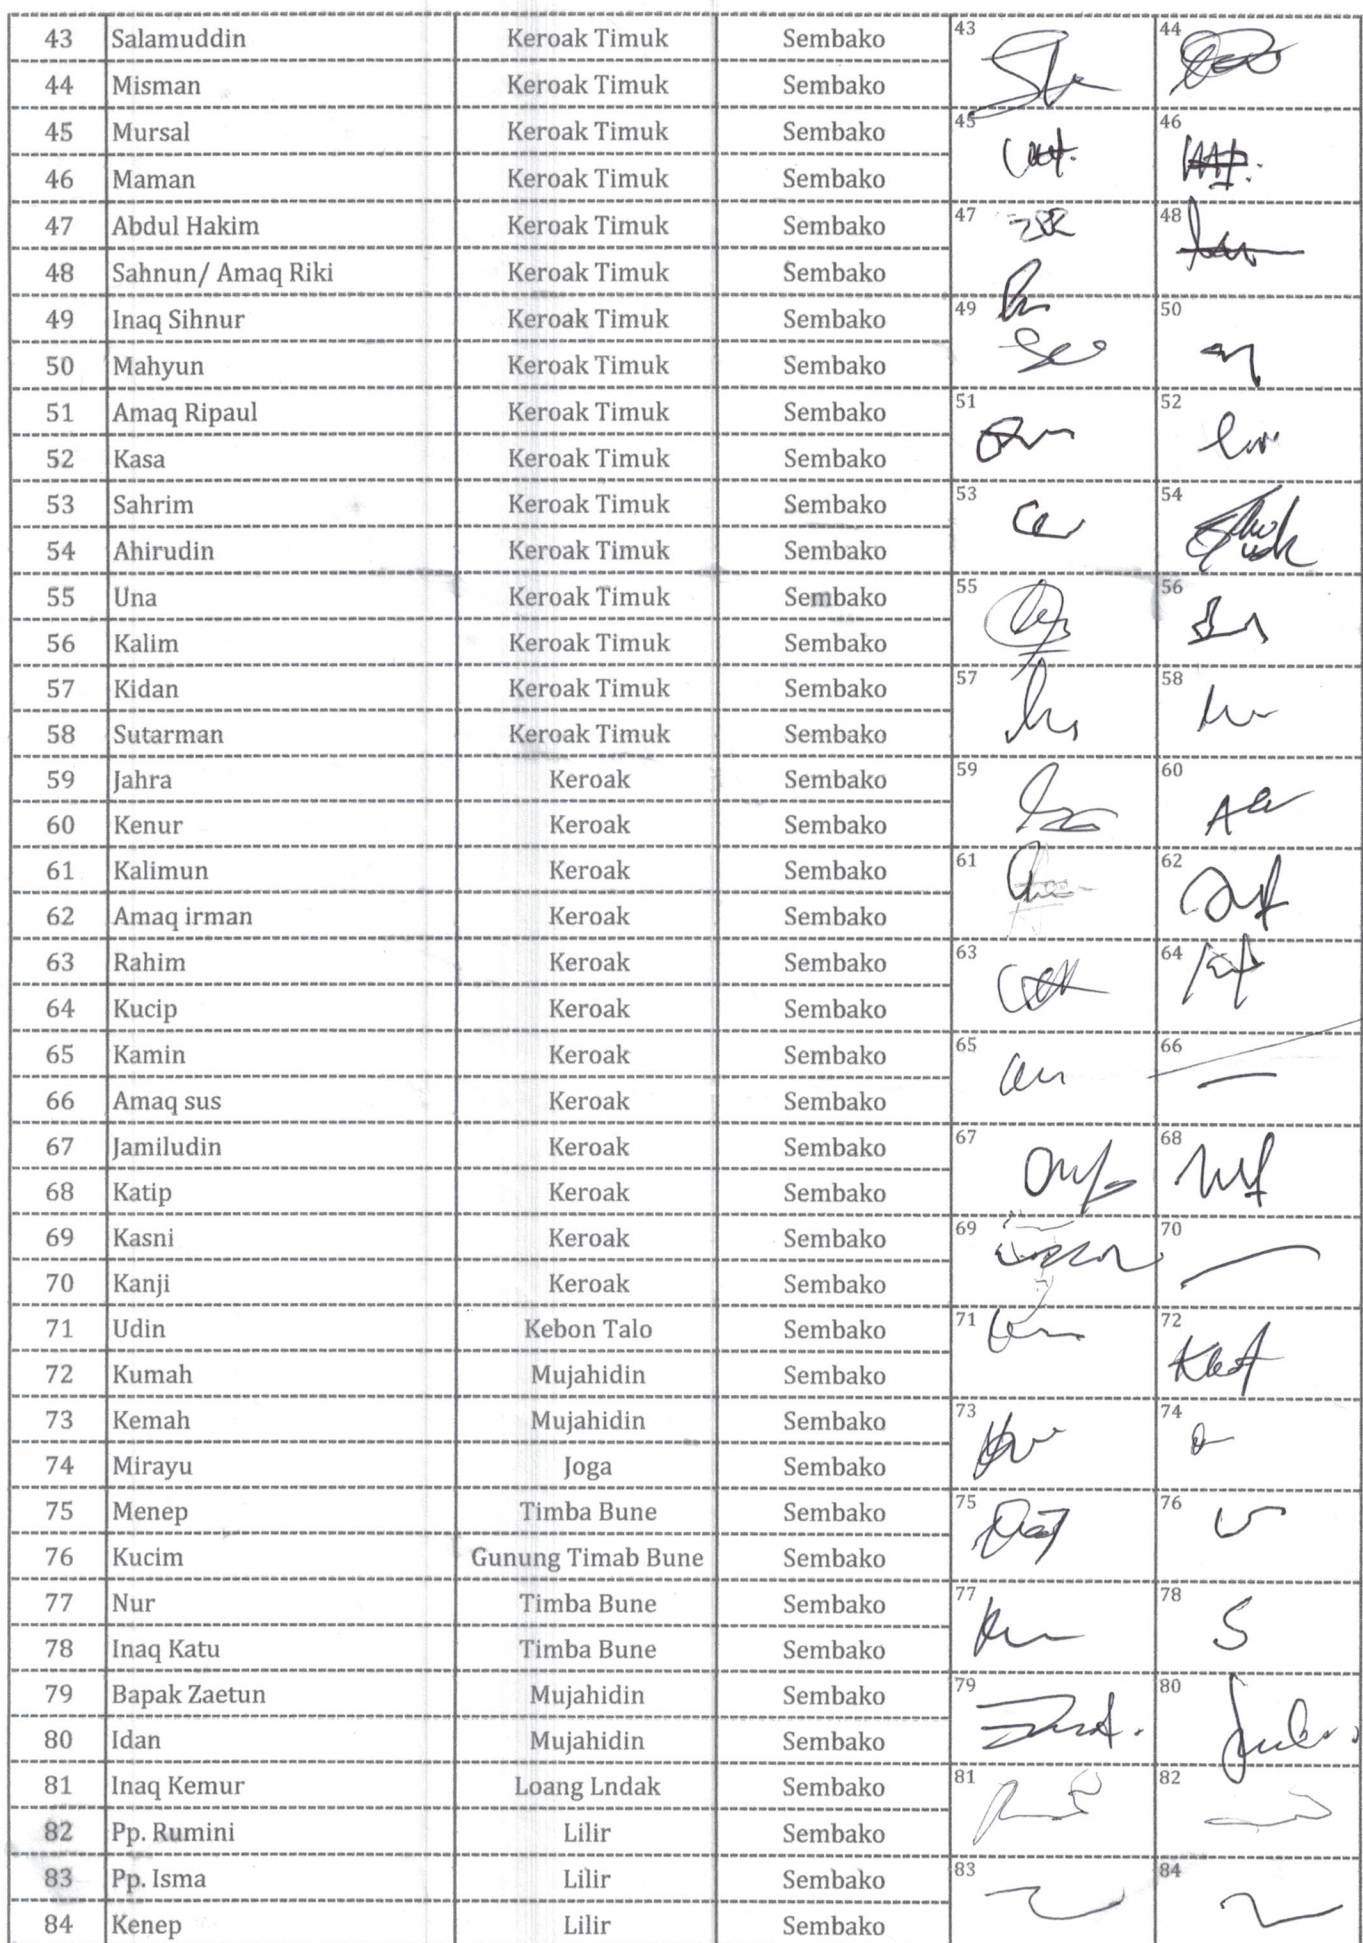 43 Salamuddin Keroak Timuk Sembako 43 44
44 Misman Keroak Timuk Sembako
45 Mursal Keroak Timuk Sembako 45 46
46 Maman Keroak Timuk Sembako
47 Abdul Hakim Keroak Timuk Sembako 47 48
48 Sahnun/ Amaq Riki Keroak Timuk Sembako
49 Inaq Sihnur Keroak Timuk Sembako 49 50
50 Mahyun Keroak Timuk Sembako
51 Amaq Ripaul Keroak Timuk Sembako 51 52
52 Kasa Keroak Timuk Sembako
53 Sahrim Keroak Timuk Sembako 53 54
54 Ahirudin Keroak Timuk Sembako
55 Una Keroak Timuk Sembako 55 56
56 Kalim Keroak Timuk Sembako
57 Kidan Keroak Timuk Sembako 57 58
58 Sutarman Keroak Timuk Sembako
59 Jahra Keroak Sembako 59 60
60 Kenur Keroak Sembako
61 Kalimun Keroak Sembako 61 62
62 Amaq irman Keroak Sembako
63 Rahim Keroak Sembako 63 64
64 Kucip Keroak Sembako
65 Kamin Keroak Sembako 65 66
66 Amaq sus Keroak Sembako
67 Jamiludin Keroak Sembako 67 68
68 Katip Keroak Sembako
69 Kasni Keroak Sembako 69 70
70 Kanji Keroak Sembako
71 Udin Kebon Talo Sembako 71 72
72 Kumah Mujahidin Sembako
73 Kemah Mujahidin Sembako 73 74
74 Mirayu Joga Sembako
75 Menep Timba Bune Sembako 75 76
76 Kucim Gunung Timab Bune Sembako
77 Nur Timba Bune Sembako 77 78
78 Inaq Katu Timba Bune Sembako
79 Bapak Zaetun Mujahidin Sembako 79 80
80 Idan Mujahidin Sembako
81 Inaq Kemur Loang Lndak Sembako 81 82
82 Pp. Rumini Lilir Sembako
83 Pp. Isma Lilir Sembako 83 84
84 Kenep Lilir Sembako